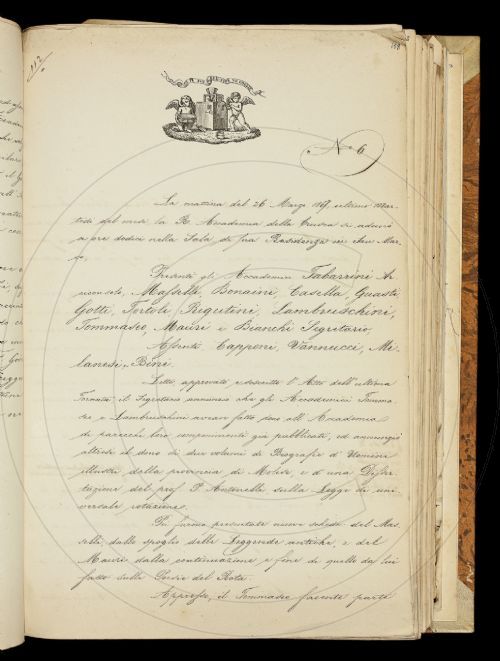 112
188
No 6
La mattina del 26 Marzo 1867 ultimo mar-
tedì del mese la R. Accademia della Crusca si adunò
a ore dodici nella Sala di sua Residenza in San Mar-
co,
Presenti gli Accademici Tabarrini Ar-
ciconsolo, Masselli, Bonaini, Casella, Guasti,
Gotti, Tortoli, Rigutini, Lambruschini,
Tommaseo, Mauri e Bianchi Segretario,
Assenti Capponi, Vannucci, Mi-
lanesi, Bini.
Letto, approvato e descritto l'Atto dell'ultima
Tornata il Segretario annunzia che gli Accademici Tomma-
seo, e Lambruschini avevan fatto dono all'Accademia
di parecchi loro componimenti già pubblicati, ed annunziò
altresì il dono di due volumi di Biografie d'Uomini
illustri della provincia di Molise, e d'una Disser-
tazione del prof. P. Antonelli sulla Legge di uni-
versale rotazione.
Poi furono presentate nuove schede del Mas-
selli, dallo spoglio delle Leggende antiche, e del
Mauri, dalla continuazione e fine di quello da lui
fatto sulle Poesie del Rota.
Appresso, il Tommaseo facente parte